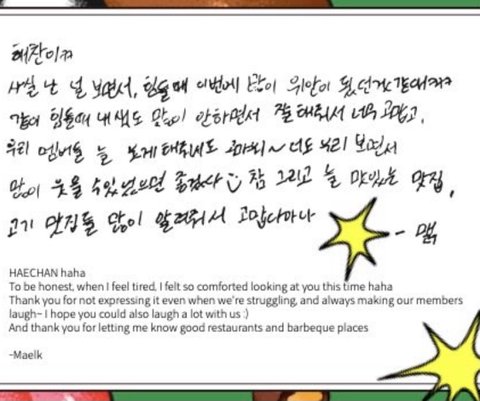 해찬이ㅋㅋ
사실 난 널 보면서, 힘들때 이번에 많이 위안이 됬던거같애ㅋㅋㅋ
같이 힘들때 내색도 많이 안하면서 잘해줘서 너무 고맙고,
우리 멤버들 늘 웃게해줘서도 고마워~ 너도 우리 보면서
많이 웃을 수 있었으면 좋겠다 :) 참 그리고 늘 맛있는 맛집,
고기 맛집들 많이 알려줘서 고맙다아나
- 맬
HAECHAN haha
To be honest, when I feel tired, I felt so comforted looking at you this time haha
Thank you for not expressing it even when we're struggling, and always making our members
laugh~ I hope you could also laugh a lot with us :)
And thank you for letting me know good restaurants and barbeque places
-Maelk